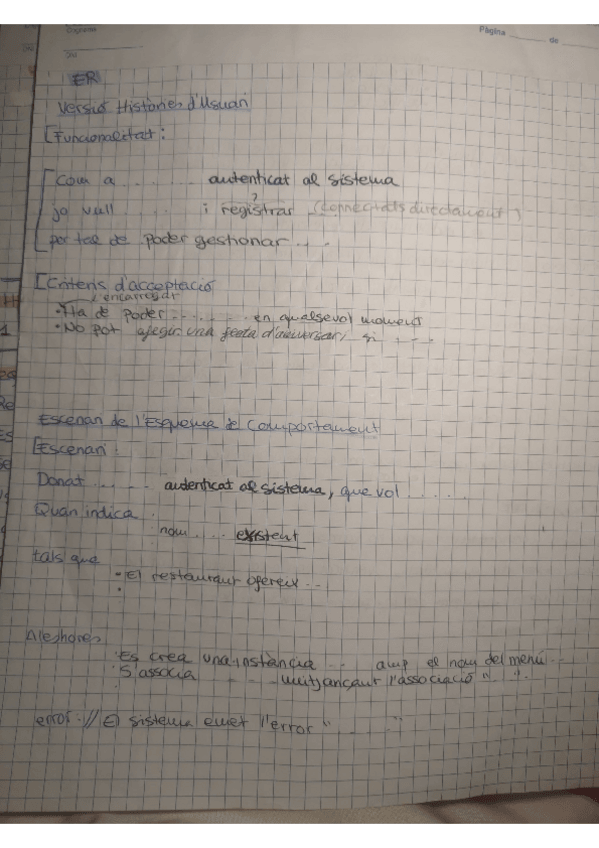 Pàgina ______ de ____
ER
Versió Històries d'Usuari
[Funcionalitat:
Com a ....... autenticat al sistema
?
jo vull ....... i registrar (connectats directament)
per tal de poder gestionar ....
[Criteris d'acceptació
l'encarregat
• Ha de poder ......... en qualsevol moment
• No pot afegir una festa d'aniversari si ....
Escenari de l'Esquema de Comportament
[Escenari:
Donat ...... autenticat al sistema, que vol .....
Quan indica .
nom .... existent
tals que
• El restaurant ofereix ...
•
Aleshores
• Es crea una instància ... amb el nom del menú ..
• S'associa ..... mitjançant l'associació ". ".
error: // El sistema emet l'error "....."